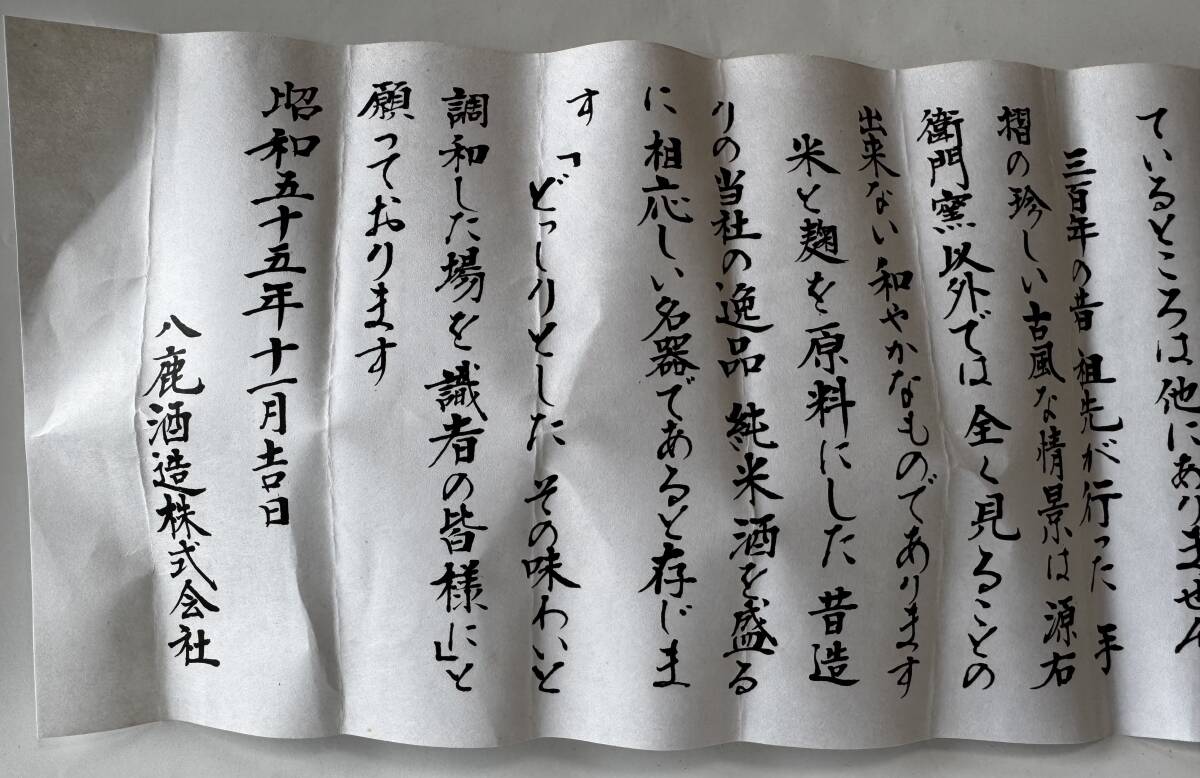 ているところは他にありません
三百年の昔 祖先が行った 手
摺の珍しい古風な情景は 源右
衛門窯以外では全く見ることの
出来ない和やかなものであります
米と麹を原料にした 昔造
りの当社の逸品 純米酒を盛る
に相応しい名器であると存じま
す
「どっしりとした その味わいと
調和した場を 識者の皆様に」と
願っております
昭和五十五年十一月吉日
八鹿酒造株式会社